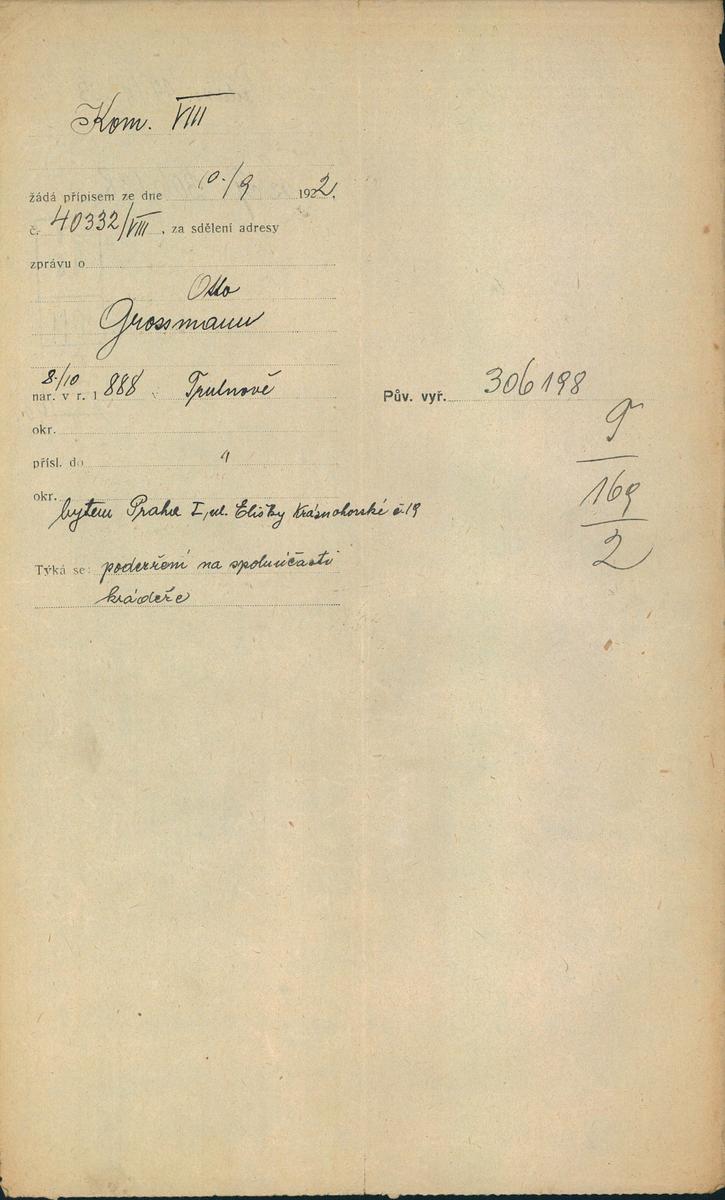 Kom. VIII
žádá přípisem ze dne 10./9 1922.
č. 40332/VIII, za sdělení adresy
zprávu o
Otto
Grossmann
8./10
nar. v r. 1888 v Trutnově
okr.
přísl. do "
okr.
bytem Praha I, ul. Elišky Krásnohorské č. 19
Týká se: podezření na spoluúčasti
krádeže
Pův. vyř. 306198
9
169
2